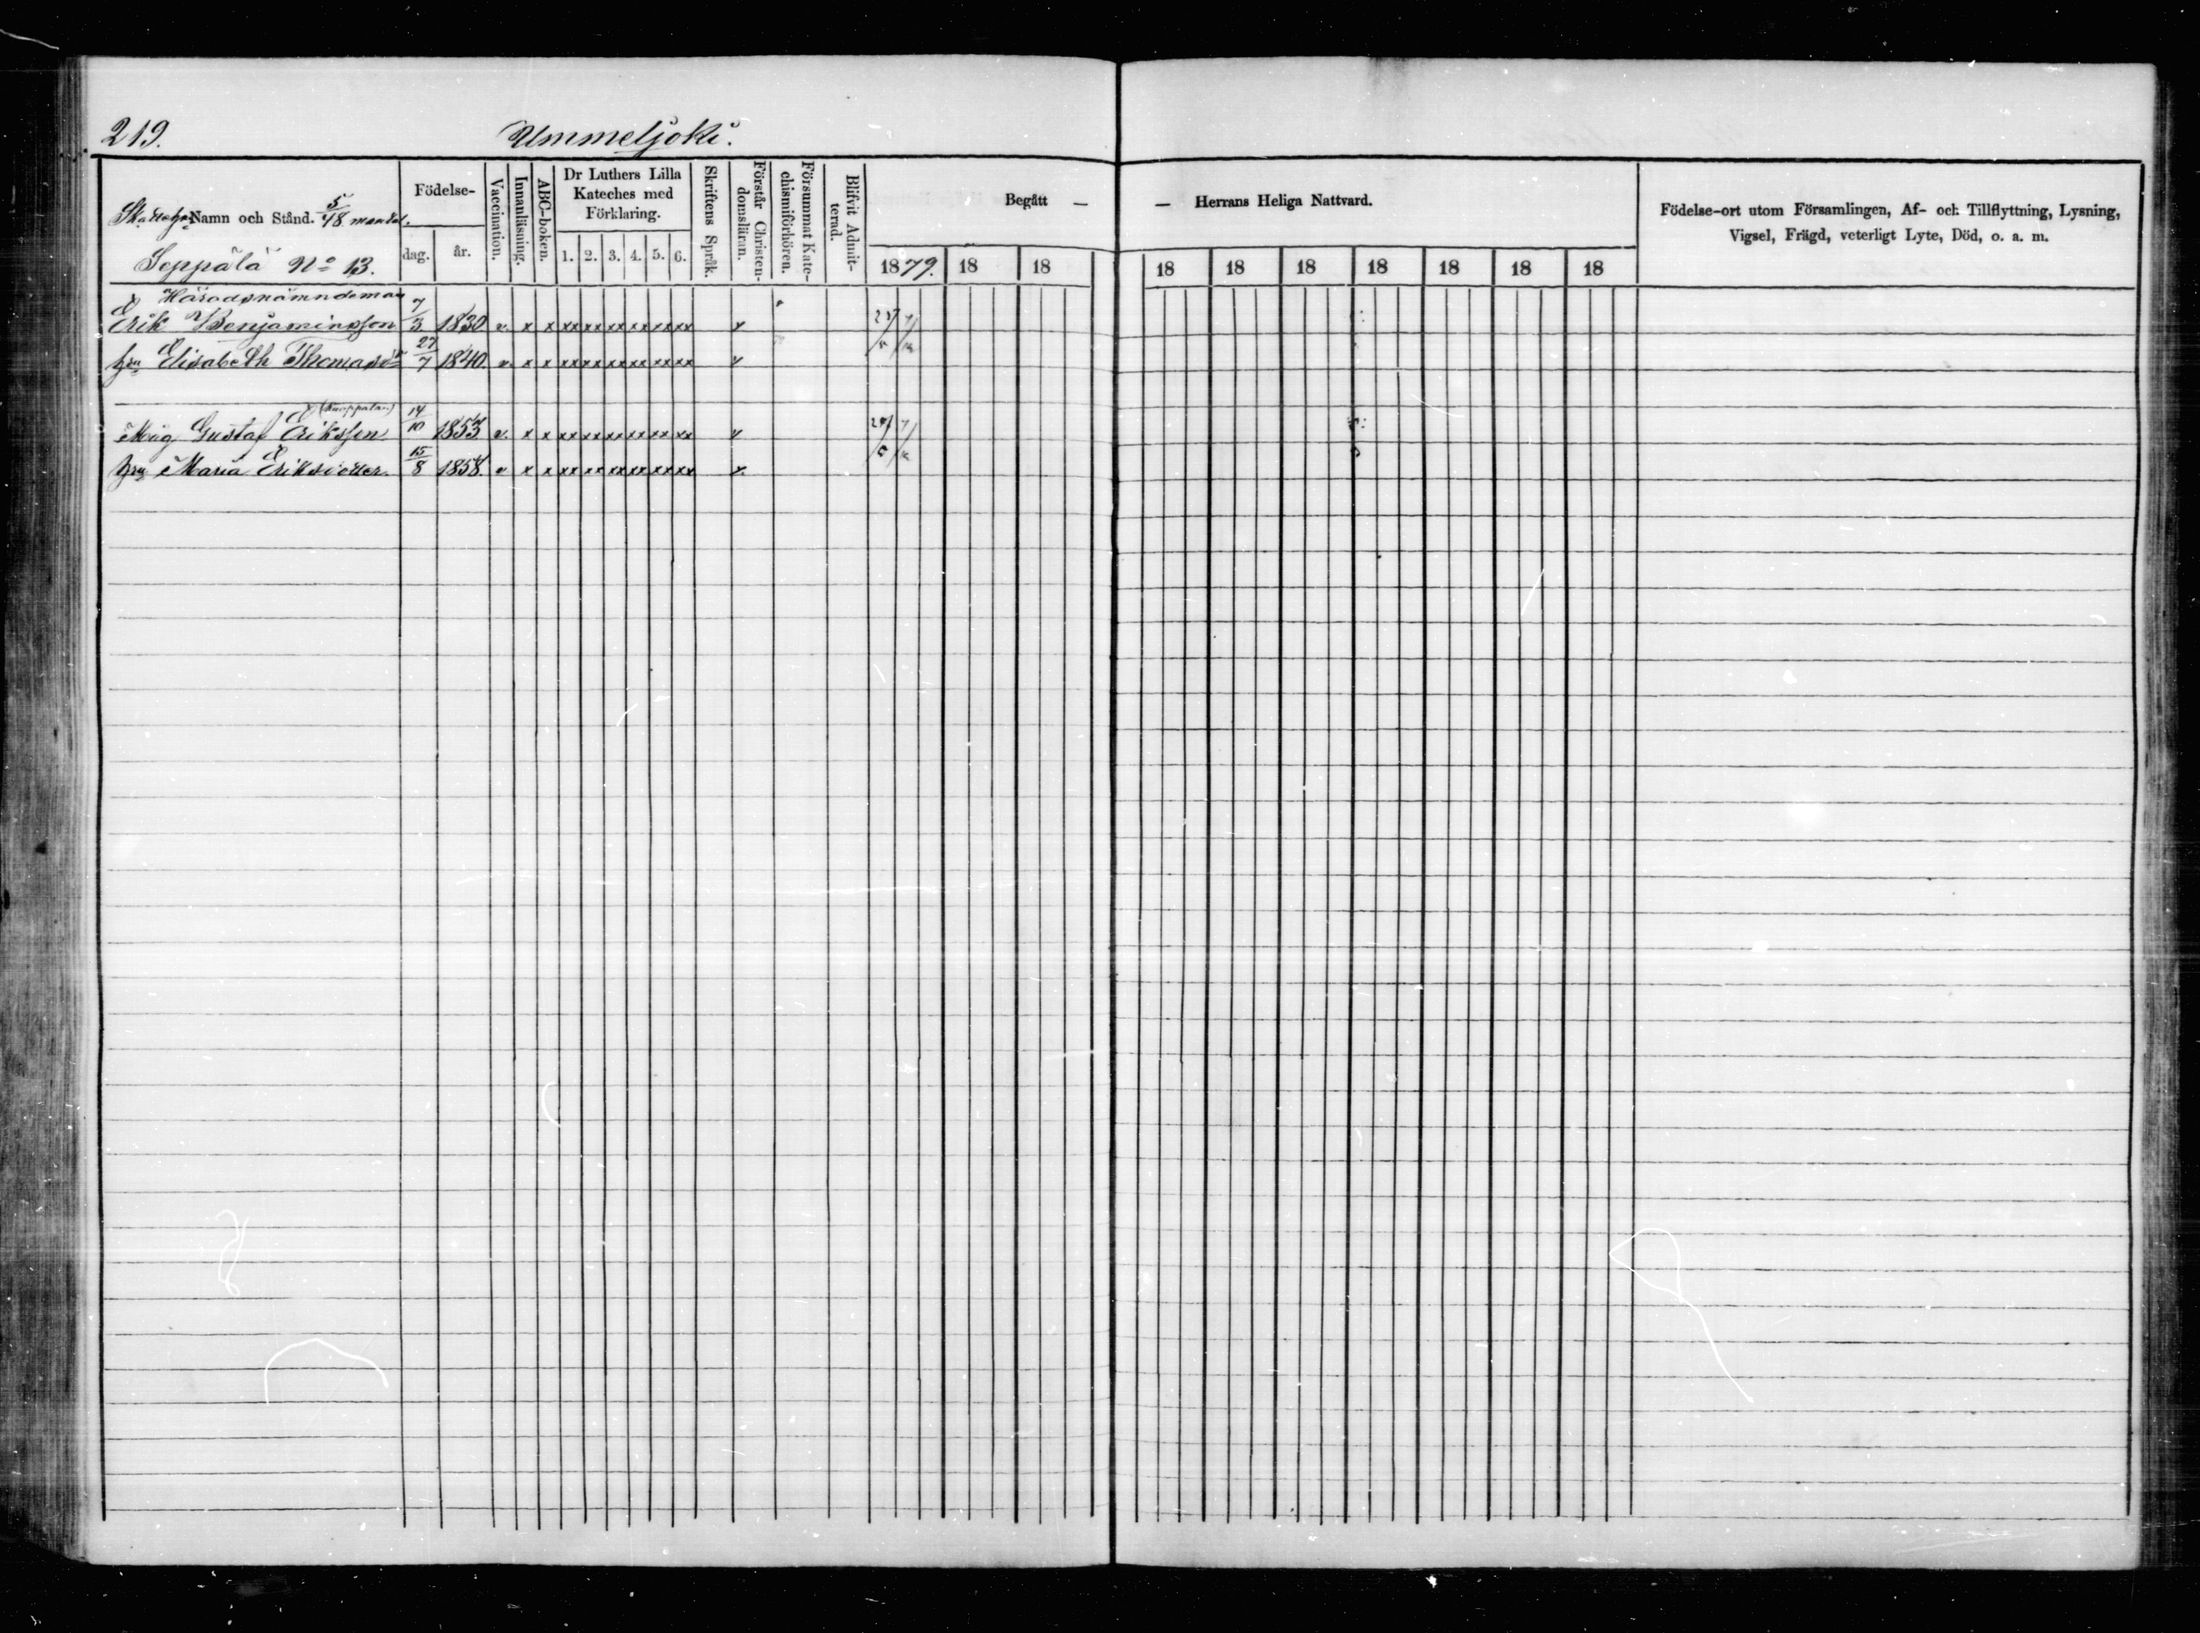 219. Ummeljoki.
Namn och Stånd. 5/48 mantal.
Seppälä No 13.
Födelse-
dag. år.
Vaccination.
Innanläsning.
ABC-boken.
Dr Luthers Lilla
Kateches med
Förklaring.
1. 2. 3. 4. 5. 6.
Skriftens Språk.
Förstår Christen-
domsläran.
Försummat Kate-
chismiförhören.
Blifvit Admit-
terad.
Begått — — Herrans Heliga Nattvard.
1879. 18 18 18 18 18 18 18 18 18
Födelse-ort utom Församlingen, Af- och Tillflyttning, Lysning,
Vigsel, Frägd, veterligt Lyte, Död, o. a. m.
Häradsnämndeman
Erik Benjaminsson 7/3 1830 v. x x xx xx xx xx xx xx x
hu Elisabeth Thomasdr 27/7 1840. v. x x xx xx xx xx xx xx x
Måg Gustaf Eriksson 14/10 1853 v. x x xx xx xx xx xx xx x
hu Maria Eriksdotter. 15/8 1858. v x x xx xx xx xx xx xx x